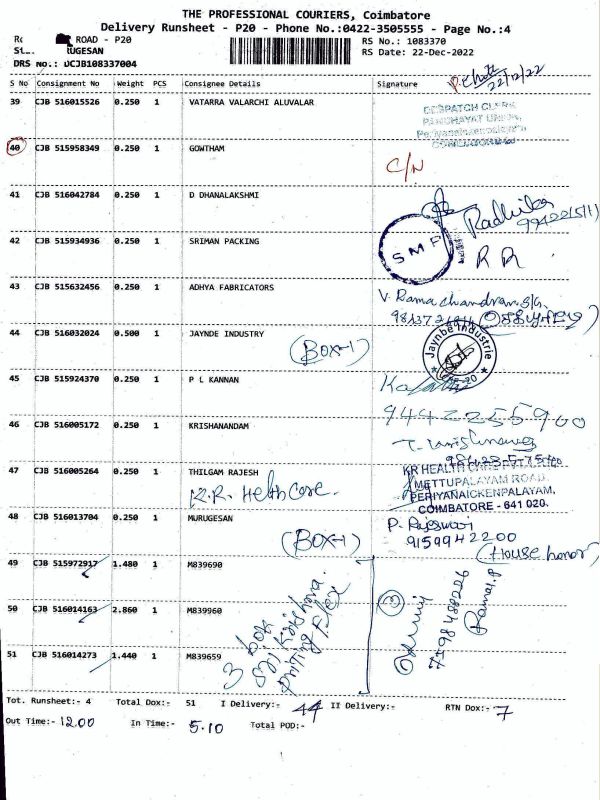 THE PROFESSIONAL COURIERS, Coimbatore
Delivery Runsheet - P20 - Phone No.:0422-3505555 - Page No.:4
ROAD - P20 RS No.: 1083370
UGESAN RS Date: 22-Dec-2022
DRS No.: DCJB108337004
S No Consignment No Weight PCS Consignee Details Signature
22/12/22
39 CJB 516015526 0.250 1 VATARRA VALARCHI ALUVALAR
DESPATCH CLERK
PANCHAYAT UNION,
40 CJB 515958349 0.250 1 GOWTHAM
C/N
41 CJB 516042784 0.250 1 D DHANALAKSHMI
Radhika
42 CJB 515934936 0.250 1 SRIMAN PACKING
SMP
RR
43 CJB 515632456 0.250 1 ADHYA FABRICATORS
V. Ramachandran
44 CJB 516032024 0.500 1 JAYNDE INDUSTRY
(BOX-1)
Jaynbe Industrie
45 CJB 515924370 0.250 1 P L KANNAN
9442255900
46 CJB 516005172 0.250 1 KRISHANANDAM
47 CJB 516005264 0.250 1 THILGAM RAJESH
K.R. Helthcare.
KR HEALTH CARE
METTUPALAYAM ROAD,
PERIYANAICKENPALAYAM,
COIMBATORE - 641 020.
48 CJB 516013704 0.250 1 MURUGESAN
(BOX-1)
P. Rajeswari
9159942200
(House honor)
49 CJB 515972917 1.480 1 M839690
50 CJB 516014163 2.860 1 M839960
51 CJB 516014273 1.440 1 M839659
3 box
Sri Krishna
Printing Flex
3
Ramar.P
Tot. Runsheet:- 4 Total Dox:- 51 I Delivery:- 44 II Delivery:- RTN Dox:- 7
Out Time:- 12.00 In Time:- 5.10 Total POD:-